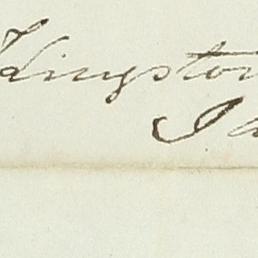 Kingston
I